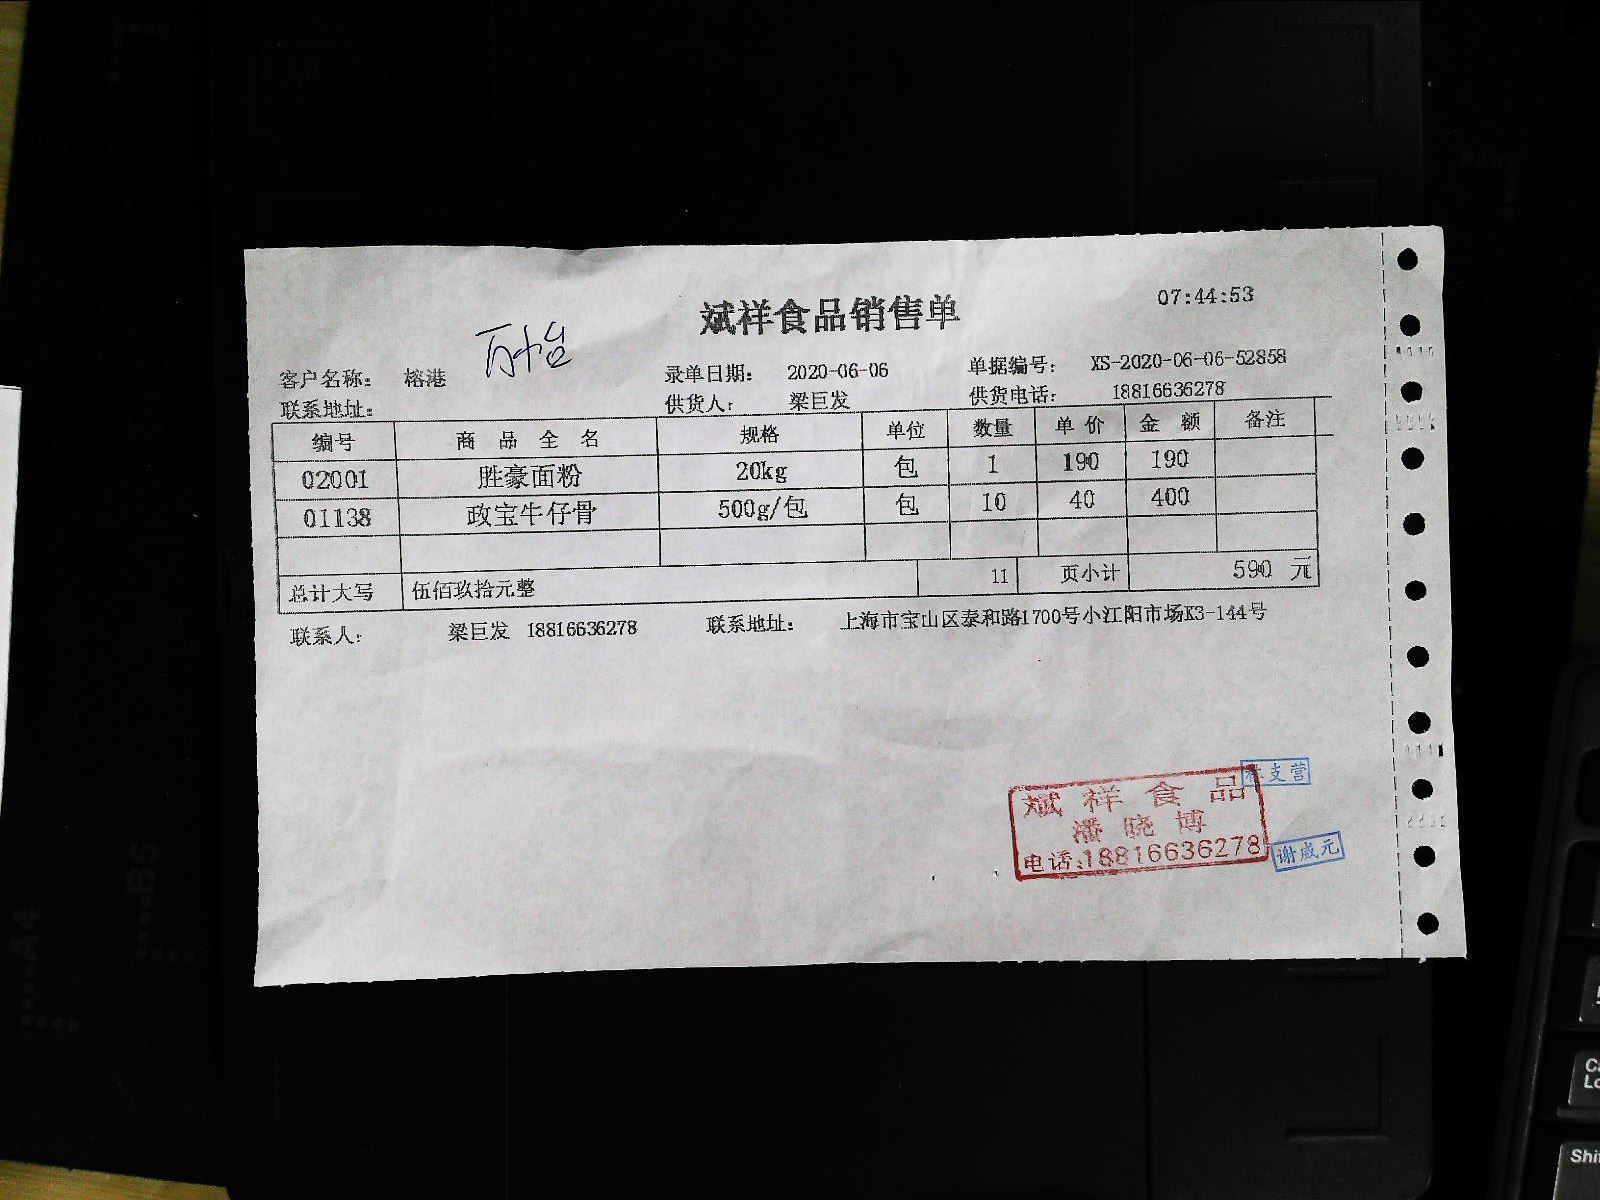 07:44:53
斌祥食品销售单
客户名称: 榕港 万怡 录单日期: 2020-06-06 单据编号: XS-2020-06-06-52858
联系地址: 供货人: 梁巨发 供货电话: 18816636278
编号 商品全名 规格 单位 数量 单价 金额 备注
02001 胜豪面粉 20kg 包 1 190 190
01138 政宝牛仔骨 500g/包 包 10 40 400
总计大写 伍佰玖拾元整 11 页小计 590 元
联系人: 梁巨发 18816636278 联系地址: 上海市宝山区泰和路1700号小江阳市场K3-144号
支营
斌祥食品
潘晓博
电话:18816636278
谢成元
A4
B5
Shi